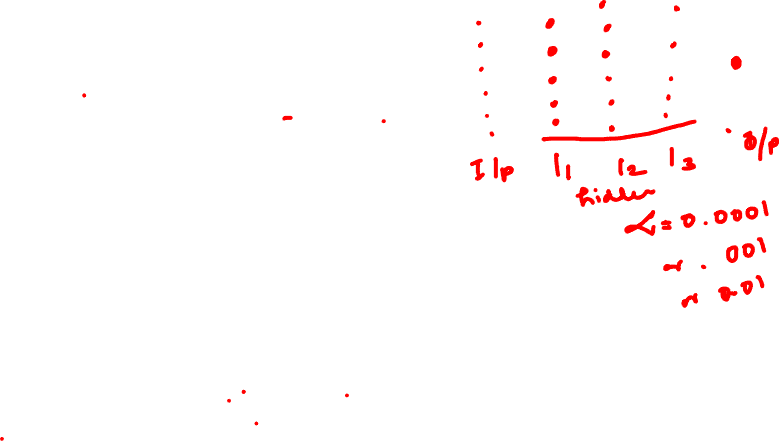 I/p l1 l2 l3 o/p
hidden
α = 0.0001
α . 001
α 0.01